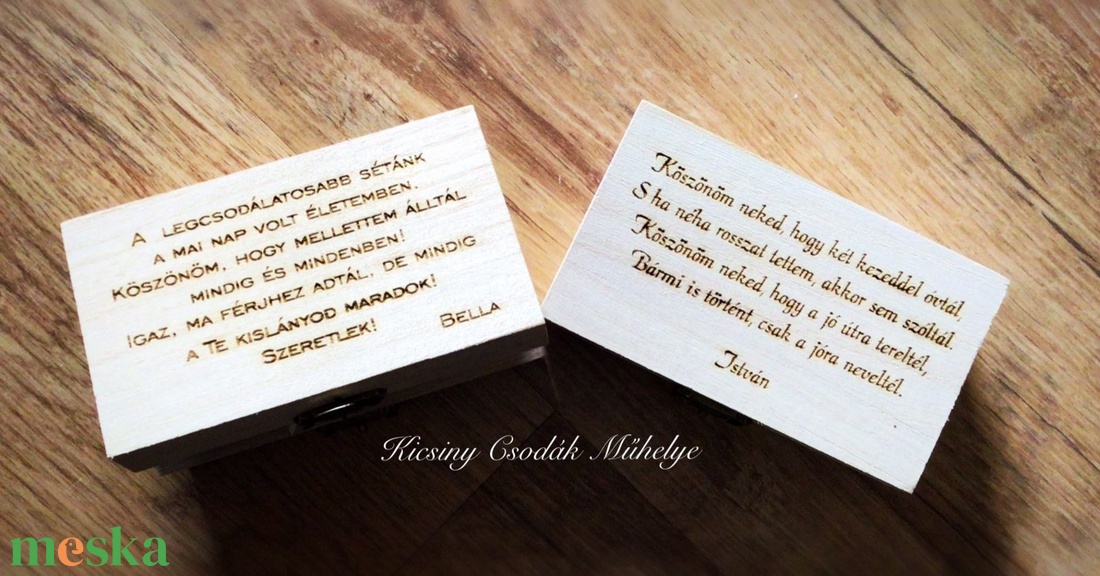 A LEGCSODÁLATOSABB SÉTÁNK
A MAI NAP VOLT ÉLETEMBEN.
KÖSZÖNÖM, HOGY MELLETTEM ÁLLTÁL
MINDIG ÉS MINDENBEN!
IGAZ, MA FÉRJHEZ ADTÁL, DE MINDIG
A TE KISLÁNYOD MARADOK!
SZERETLEK!
BELLA
Köszönöm neked, hogy két kezeddel óvtál,
S ha néha rosszat tettem, akkor sem szóltál.
Köszönöm neked, hogy a jó útra tereltél,
Bármi is történt, csak a jóra neveltél.
István
Kicsiny Csodák Műhelye
meska